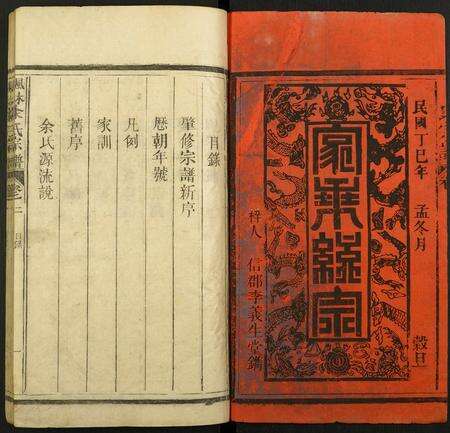 民國丁巳年 孟冬月 穀旦
梓人 信郡李義生堂鐫
目錄
肇修宗譜新序
厯朝年號
凡例
家訓
舊序
余氏源流說
楓林余氏宗譜 卷之 目錄